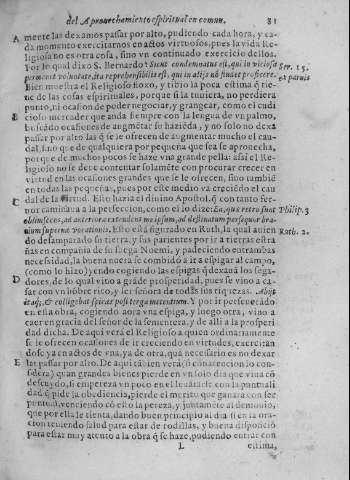 del Aprouechamiento espiritual en comun. 81
A mente las dexamos passar por alto, pudiendo cada hora, y ca-
da momento exercitarnos en actos virtuosos, pues la vida Re-
ligiosa no es otra cosa, sino vn continuado exercicio dellos.
Por lo qual dixo S. Bernardo: Sicut condemnatus est, qui in vicioso
Ser. 25.
permanet voluntate, ita reprehensibilis est, qui in alijs nõ studet proficere.
ex paruis
Bien muestra el Religioso floxo, y tibio la poca estima q̃ tie-
ne de las cosas espirituales, porque si la tuuiera, no perdiera
punto, ni ocasion de poder negociar, y grangear, como el cudi
B cioso mercader que anda siempre con la lengua de vn palmo,
buscãdo ocasiones de augmẽtar su haziẽda, y no solo no dexa
passar por alto las q̃ se le ofrecen de augmentar mucho el cau-
dal, sino que de qualquiera por pequeña que sea se aprouecha,
porque de muchos pocos se haze vna grande pella: assi el Re-
ligioso no se deue contentar solamẽte con procurar crecer en
virtud en las ocasiones grandes que se le ofrecen, sino tambiẽ
en todas las pequeñas, pues por este medio va creciẽdo el cau
dal de la virtud. Esto hazia el diuino Apostol, q̃ con tanto fer-
C uor caminaua a la perfeccion, como el lo dize: Ea, quæ retro sunt
Philip. 3
obliuiscens, ad anteriora extendens me ipsum, ad destinatum persequor bra-
uium supernæ vocationis. Esto està figurado en Ruth, la qual auien
Ruth. 2.
do desamparado su tierra, y sus parientes por ir a tierras estra
ñas en compañia de su suegra Noemi, y padeciendo entrambas
necessidad, la buena nuera se combidò a ir a espigar al campo,
(como lo hizo) yendo cogiendo las espigas q̃ dexauã los sega-
D dores, de lo qual vino a grãde prosperidad, pues se vino a ca-
sar con vn hõbre rico, y ser señora de todas sus riquezas. Abijt
itaq;, & colligebat spicas post terga metentium. Y por ir perseuerãdo
en esta obra, cogiendo aora vna espiga, y luego otra, vino a
caer en gracia del señor de la sementera, y de alli a la prosperi
dad dicha. De aqui verà el Religioso a quien ordinariamente
se le ofrecen ocasiones de ir creciendo en virtudes, exercitan
dose ya en actos de vna, ya de otra, quã necessario es no dexar
E las passar por alto. De aqui tãbien verà (si cõ atencion lo con-
sidera) quan grandes bienes pierde en vn solo dia que viua cõ
descuydo, si empereza vn poco en el leuãtarse con la puntuali
dad q̃ pide la obediencia, pierde el merito que ganara con ser
puntual, venciendo cõ esto la pereza, y juntamẽte al demonio,
que por ella le tienta, dando buen principio al dia si en la ora-
cion teniendo salud para estar de rodillas, y buena disposiciõ
para estar muy atento a la obra q̃ se haze, pudiendo entrar con
L estima,